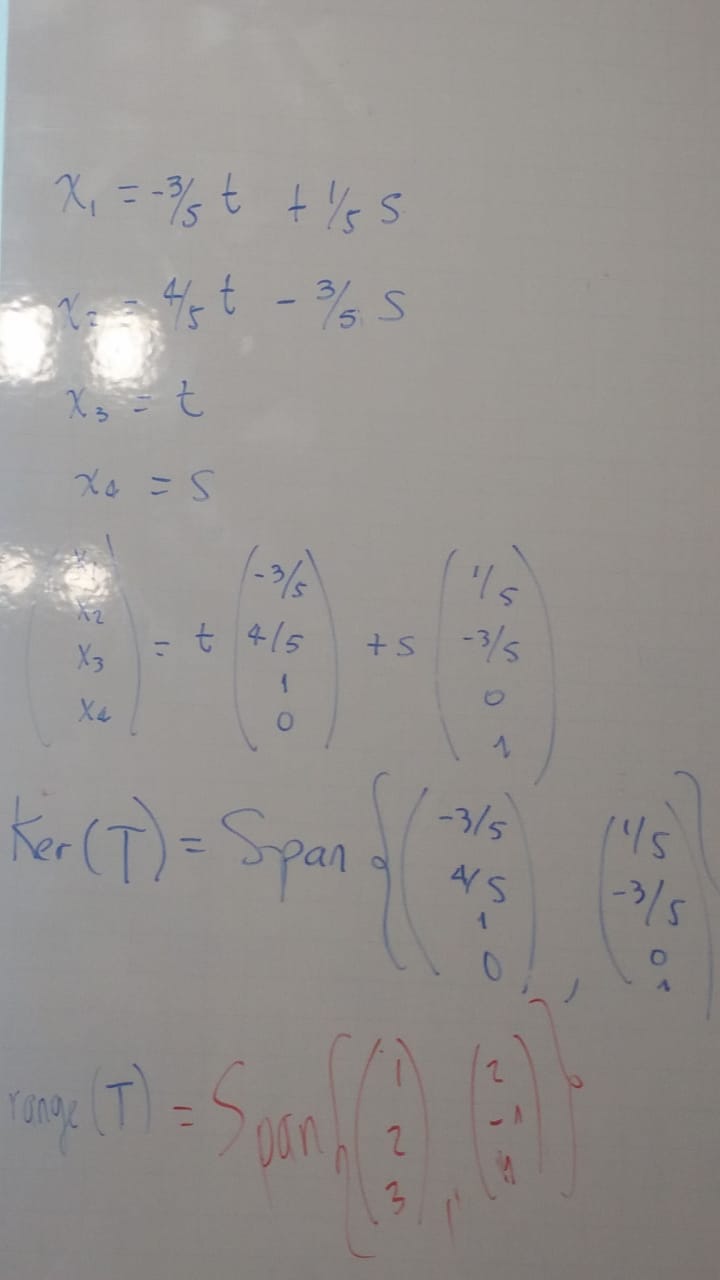 x₁ = -3/5 t + 1/5 s
x₂ = 4/5 t - 3/5 s
x₃ = t
x₄ = s
(x₁ x₂ x₃ x₄) = t (-3/5 4/5 1 0) + s (1/5 -3/5 0 1)
Ker(T) = Span {(-3/5 4/5 1 0), (1/5 -3/5 0 1)}
range(T) = Span{(1 2 3), (2 -1 1)}